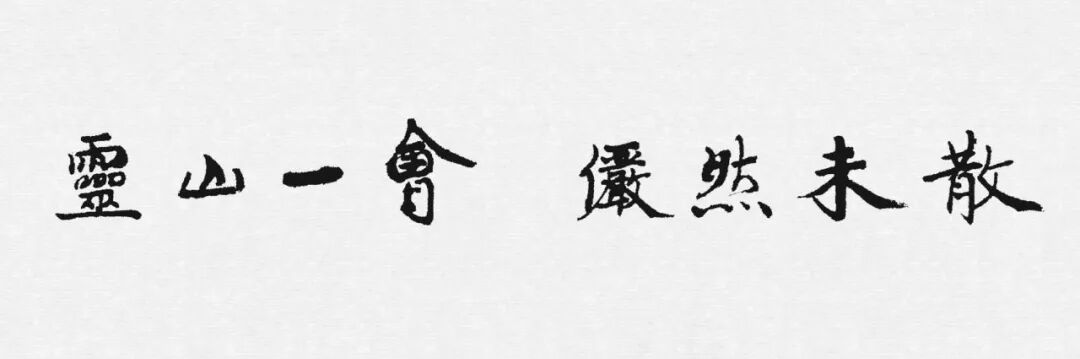 靈山一會 儼然未散